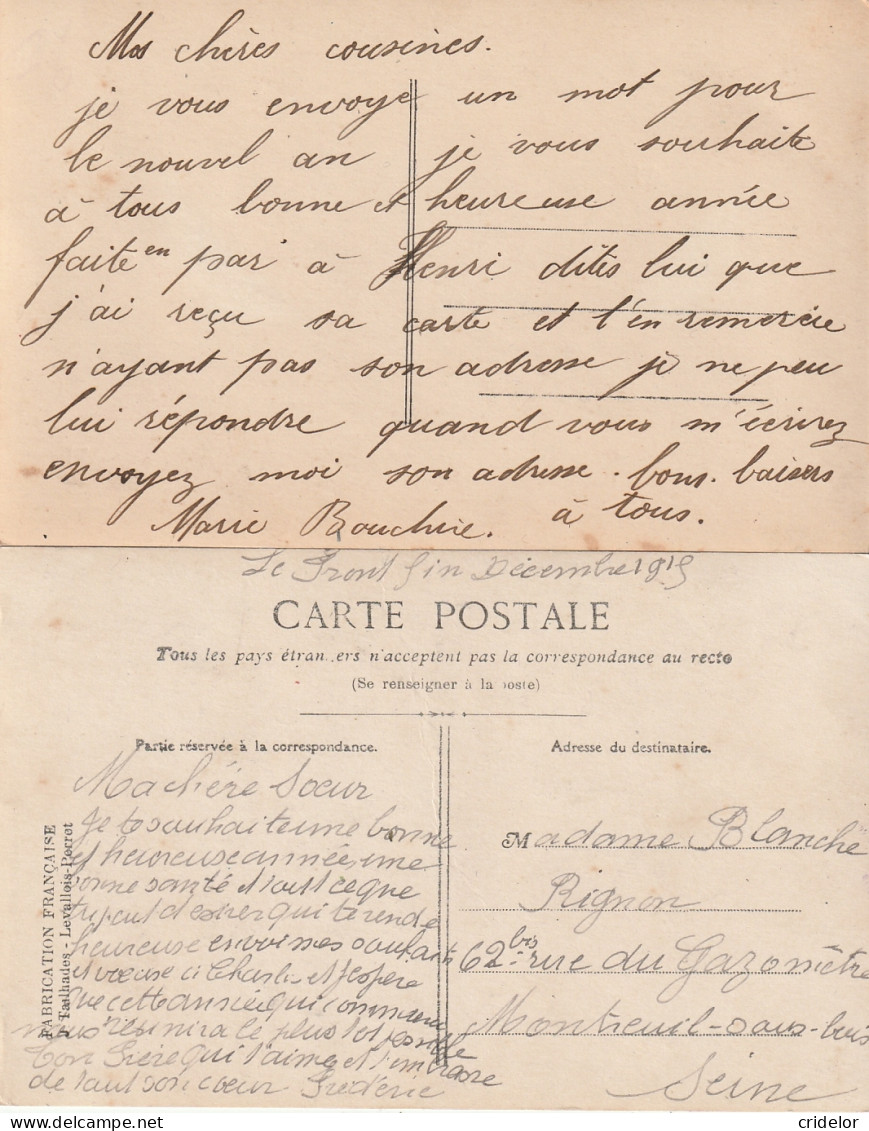 Mes chères cousines.
je vous envoye un mot pour
le nouvel an je vous souhaite
à tous bonne et heureuse année
faite en par à Henri dites lui que
j'ai reçu sa carte et l'en remercie
n'ayant pas son adresse je ne peu
lui répondre quand vous m'écrivez
envoyez moi son adresse. bons baisers
à tous.
Marie Bouchrie.
Le Front fin Décembre 1915
CARTE POSTALE
Tous les pays étrangers n'acceptent pas la correspondance au recto
(Se renseigner à la poste)
Partie réservée à la correspondance.
Ma chére Soeur
Je te souhaite une bonne
et heureuse année, une
bonne santé et tout ce que
tu peut désirer qui te rende
heureuse
Charles et J'espère
Que cette année qui commence
nous réunira le plus tot possible
Ton Frère qui t'aime et t'embrasse
de tout son coeur Frédéric
FABRICATION FRANÇAISE
Tailhades - Levallois-Perret
Adresse du destinataire.
Madame Blanche
Rignon
62 bis rue du Gazomètre
Montreuil-sous-bois
Seine
cridelor
www.delcampe.net